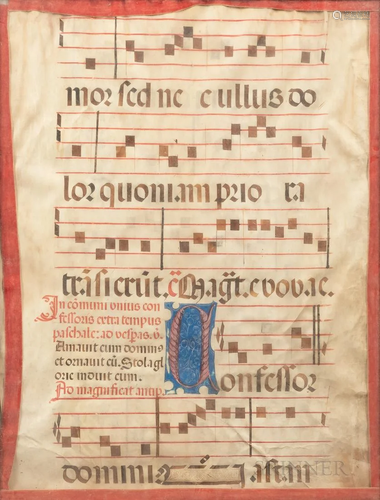 mor sed ne c ullus do
lor quoniam prio ra
trāsierūt. c̄ Magt̄. evovac.
In cōmuni unius con
fessoris extra tempus
paschale: ad vesp̄as. v̄.
Amavit eum dominus
et ornavit eū. Stola gl
orie induit eum.
Ad magnificat antip̄.
Confessor
domini astan